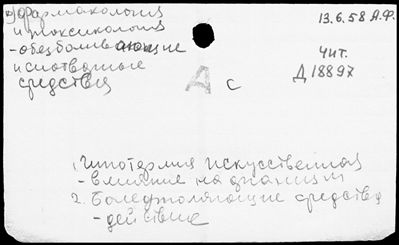 Фармакология
и токсикология
- обезболивающие
и снотворные
средства
13.6.58 А.Ф.
Чит.
Д 18897
А с
1. Гипотермия искусственная
- влияние на
2. Болеутоляющие средства
- действие